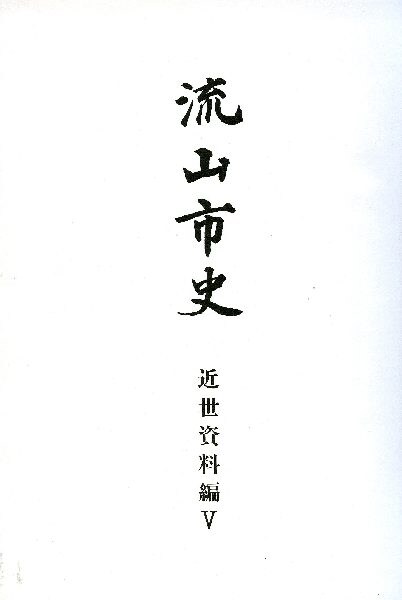 流山市史
近世資料編Ⅴ